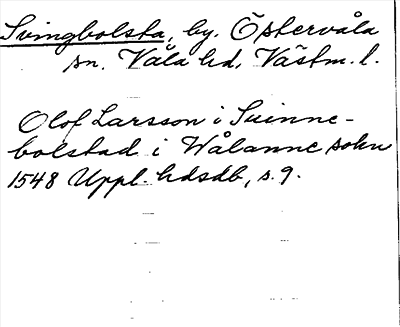 Svingbolsta, by. Östervåla
sn. Våla hd, Västm. l.
Olof Larsson i Suinne-
bolstad i Wålanne sokn
1548 Uppl. hdsdb, s. 9.